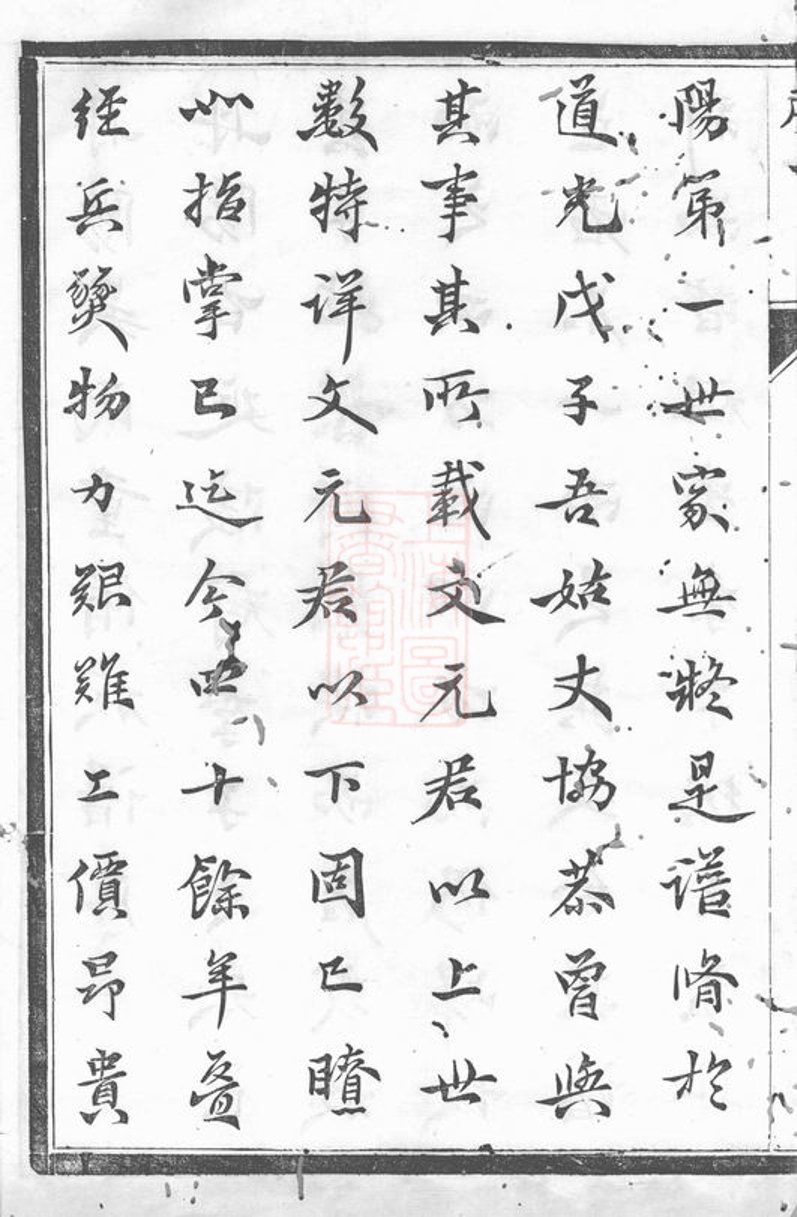 陽第一世家無疑是譜脩於
道光戊子吾姑丈協恭曾與
其事其所載文元君以上世
數特詳文元君以下固已瞭
如指掌已迄今四十餘年疊
經兵燹物力艱難工價昂貴
上海圖
書館藏